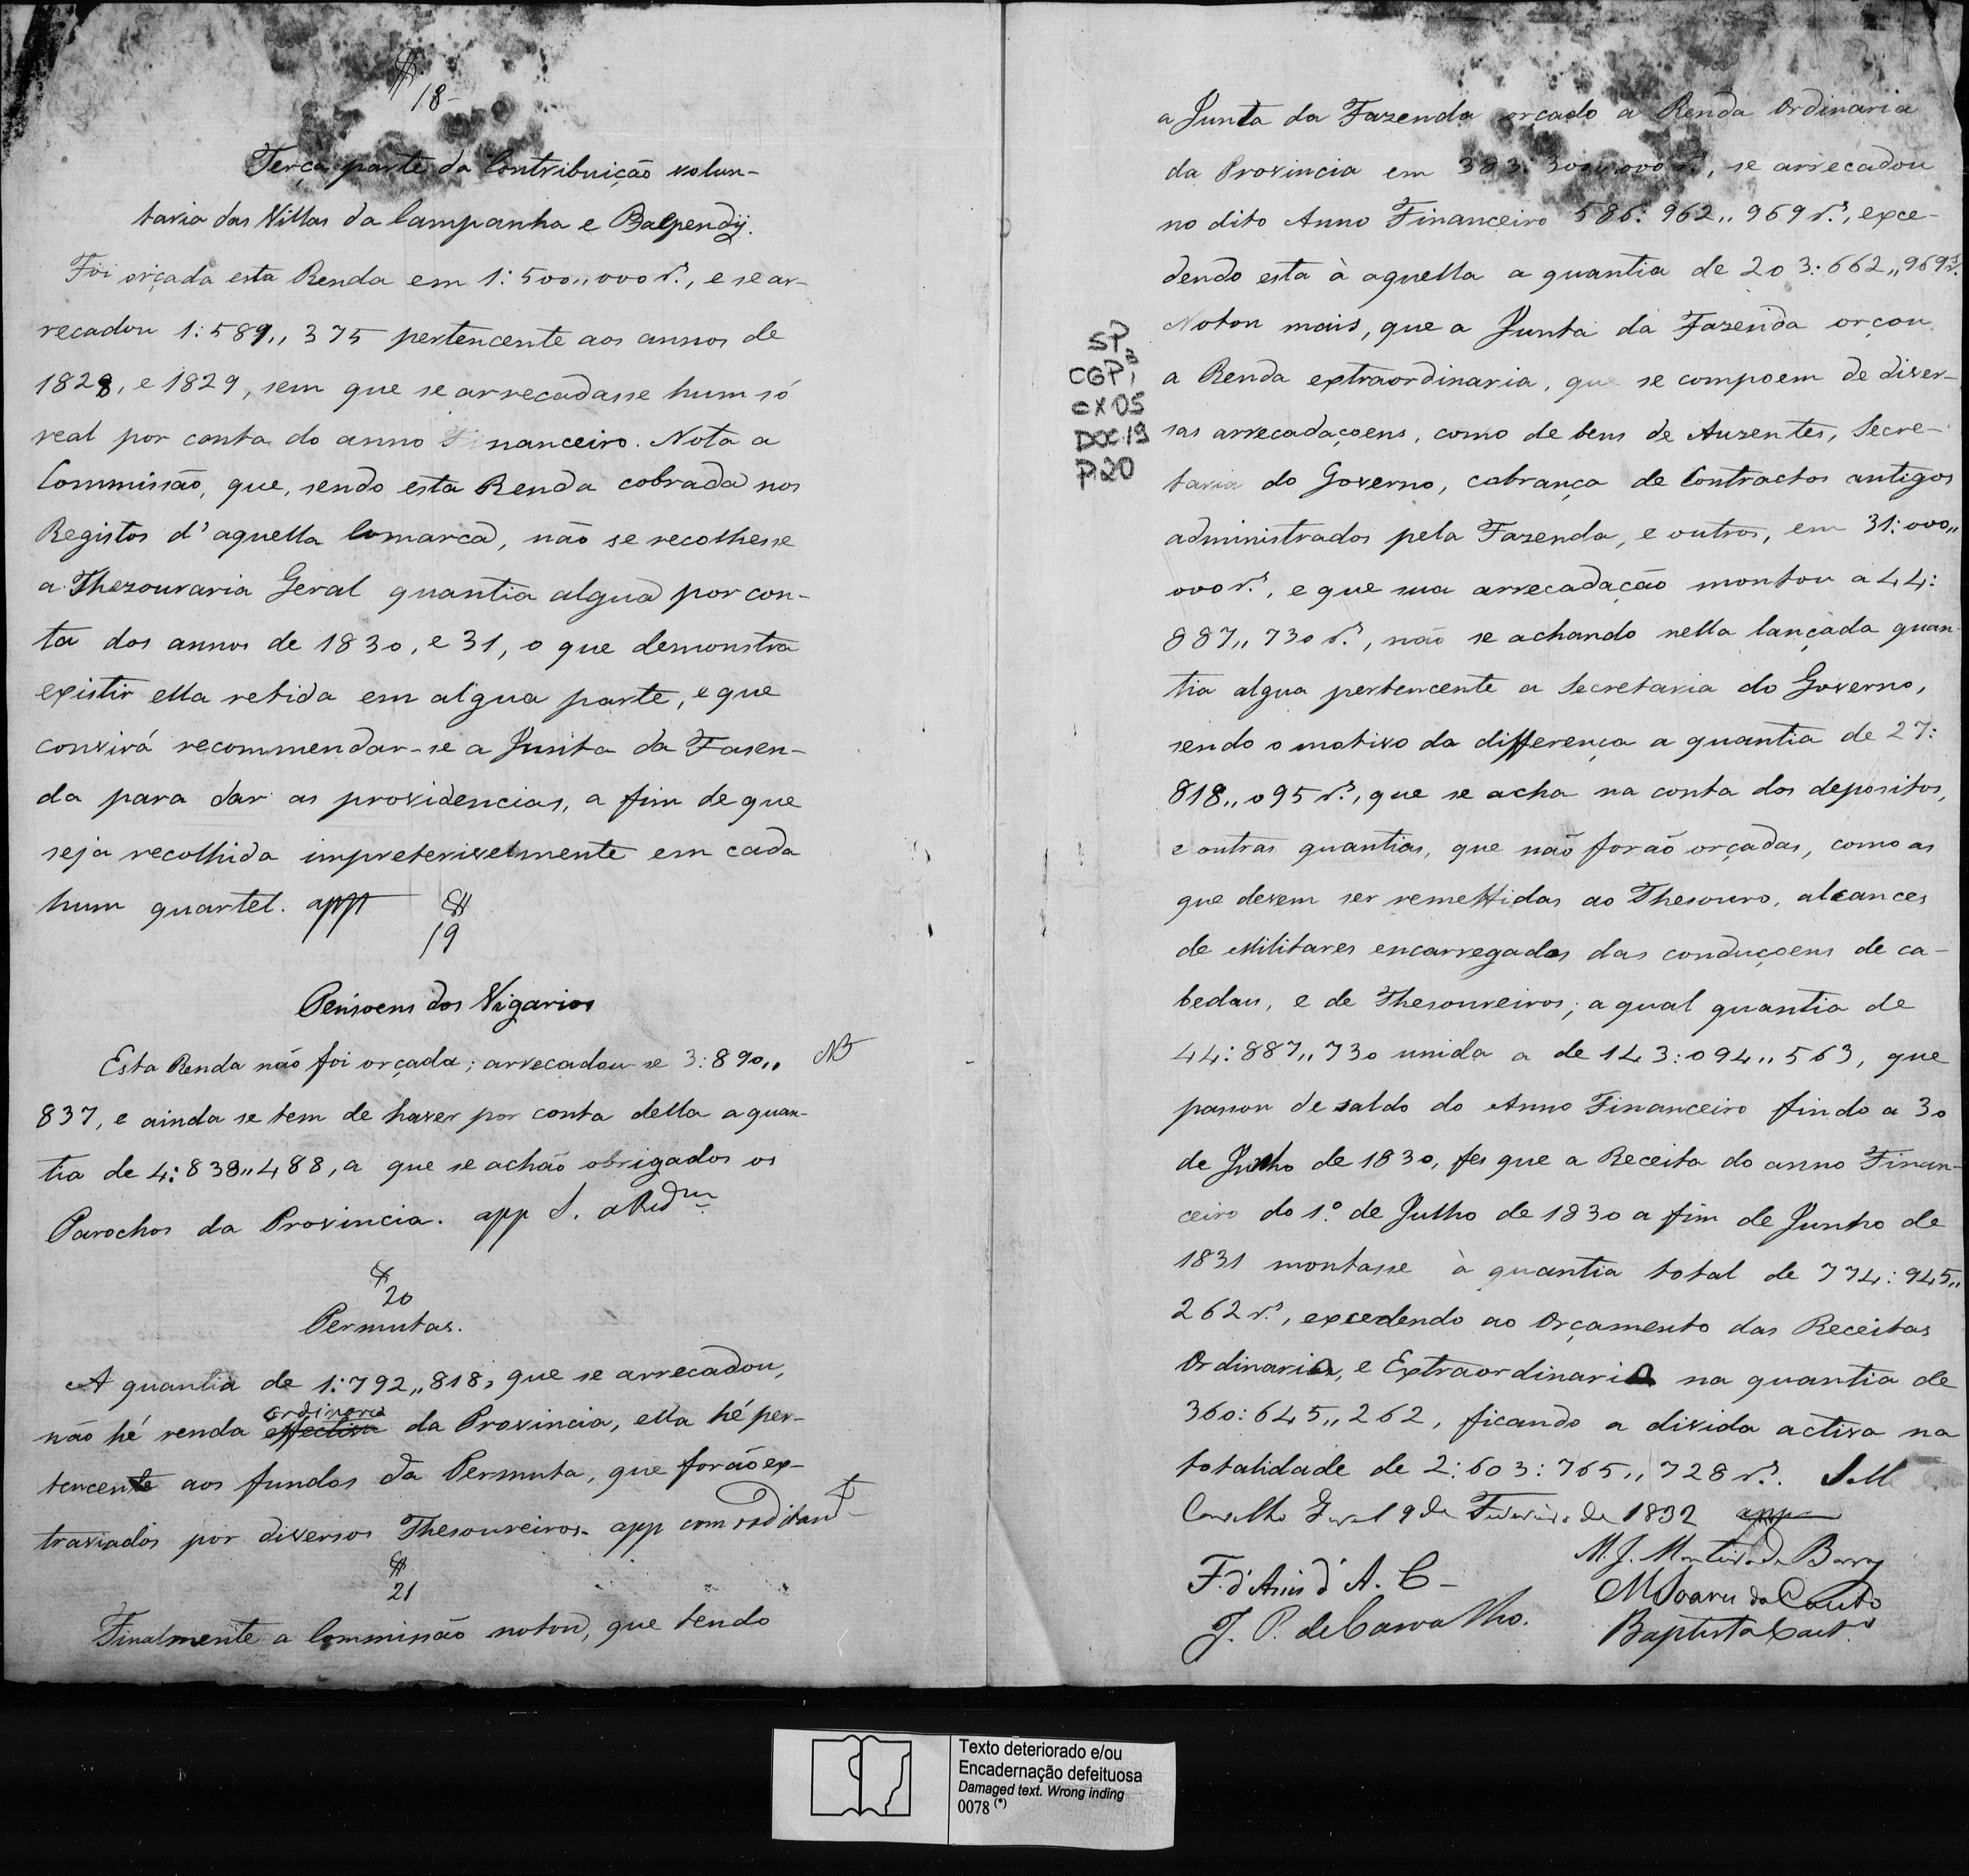 §
18
Terça parte da Contribuição volun-
taria das Villas da Campanha e Baepndÿ.
Foi orçada esta Renda em 1:500,,000 rs., e se ar-
recadou 1:589,,375 pertencente aos annos de
1828, e 1829, sem que se arrecadasse hum só
real por conta do anno Financeiro. Nota a
Commissão, que, sendo esta Renda cobrada nos
Registos d'aquella Comarca, não se recolhesse
a Thezouraria Geral quantia algua por con-
ta dos annos de 1830, e 31, o que demonstra
existir ella retida em algua parte, e que
convirá recommendar-se a Junta da Fasen-
da para dar as providencias, a fim de que
seja recolhida impreterivelmente em cada
hum quartel. app
§
19
Pensoens dos Vigarios
Esta Renda não foi orçada; arrecadou-se 3:890,, NB
837, e ainda se tem de haver por conta della a quan-
tia de 4:838,,488, a que se achão obrigados os
Parochos da Provincia. app S. a Redm
§
20
Permutas.
A quantia de 1:792,,818, que se arrecadou,
ordinaria
não hé renda effectiva da Provincia, ella hé per-
tencente aos fundos da Permuta, que forão ex-
traviados por diversos Thesoureiros. app com
§
21
Finalmente a Commissão notou, que tendo
a Junta da Fazenda orçado a Renda Ordinaria
da Provincia em 383:300,,000 rs., se arrecadou
no dito Anno Financeiro 586:962,,969 rs., exce-
dendo esta à aquella a quantia de 203:662,,969 rs.
Notou mais, que a Junta da Fazenda orçou
a Renda extraordinaria, que se compoem de diver-
sas arrecadaçoens, como de bens de Auzentes, Secre-
taria do Governo, cobrança de Contractos antigos
administrados pela Fazenda, e outros, em 31:000,,
000 rs., e que sua arrecadação montou a 44:
887,,730 rs., não se achando nella lançada quan-
tia algua pertencente a Secretaria do Governo,
sendo o motivo da differença a quantia de 27:
818,,095 rs., que se acha na conta dos depositos,
e outras quantias, que não forão orçadas, como as
que devem ser remettidas ao Thesouro, alcances
de Militares encarregados das conduçoens de ca-
bedaes, e de Thesoureiros; a qual quantia de
44:887,,730 unida a de 143:094,,563, que
passou de saldo do Anno Financeiro findo a 30
de Junho de 1830, fes que a Receita do anno Finan-
ceiro do 1.º de Julho de 1830 a fim de Junho de
1831 montasse à quantia total de 774:945,,
262 rs., excedendo ao Orçamento das Receitas
Ordinaria, e Extraordinaria na quantia de
360:645,,262, ficando a divida activa na
totalidade de 2:603:765,,728 rs. S. M
Conselho Geral 9 de Fevereiro de 1832 app
M. J. Monteiro de Barros
F. d'Assis d'A. C.
M Soares do Couto
J. P. de Carvalho.
Baptista Caetº
SP
CGP, 3
CX05
DOC.19
P.20
Texto deteriorado e/ou
Encadernação defeituosa
Damaged text. Wrong inding
0078 (*)